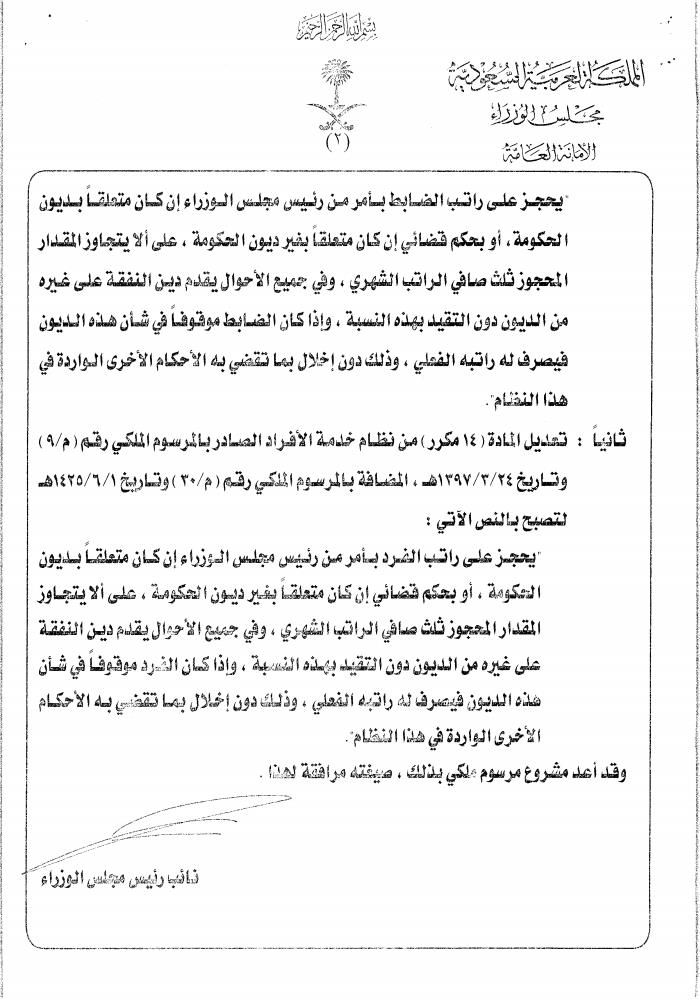 بسم الله الرحمن الرحيم
المملكة العربية السعودية
مجلس الوزراء
الأمانة العامة
(٢)
"يحجز على راتب الضابط بأمر من رئيس مجلس الوزراء إن كان متعلقاً بديون
الحكومة ، أو بحكم قضائي إن كان متعلقاً بغير ديون الحكومة ، على ألا يتجاوز المقدار
المحجوز ثلث صافي الراتب الشهري ، وفي جميع الأحوال يقدم دين النفقة على غيره
من الديون دون التقيد بهذه النسبة ، وإذا كان الضابط موقوفاً في شأن هذه الديون
فيصرف له راتبه الفعلي ، وذلك دون إخلال بما تقضي به الأحكام الأخرى الواردة في
هذا النظام".
ثانياً : تعديل المادة (١٤ مكرر) من نظام خدمة الأفراد الصادر بالمرسوم الملكي رقم (م/٩)
وتاريخ ١٣٩٧/٣/٢٤هـ ، المضافة بالمرسوم الملكي رقم (م/٣٠) وتاريخ ١٤٢٥/٦/١هـ
لتصبح بالنص الآتي :
"يحجز على راتب الفرد بأمر من رئيس مجلس الوزراء إن كان متعلقاً بديون
الحكومة ، أو بحكم قضائي إن كان متعلقاً بغير ديون الحكومة ، على ألا يتجاوز
المقدار المحجوز ثلث صافي الراتب الشهري ، وفي جميع الأحوال يقدم دين النفقة
على غيره من الديون دون التقيد بهذه النسبة ، وإذا كان الفرد موقوفاً في شأن
هذه الديون فيصرف له راتبه الفعلي ، وذلك دون إخلال بما تقضي به الأحكام
الأخرى الواردة في هذا النظام".
وقد أعد مشروع مرسوم ملكي بذلك ، صيغته مرافقة لهذا .
نائب رئيس مجلس الوزراء